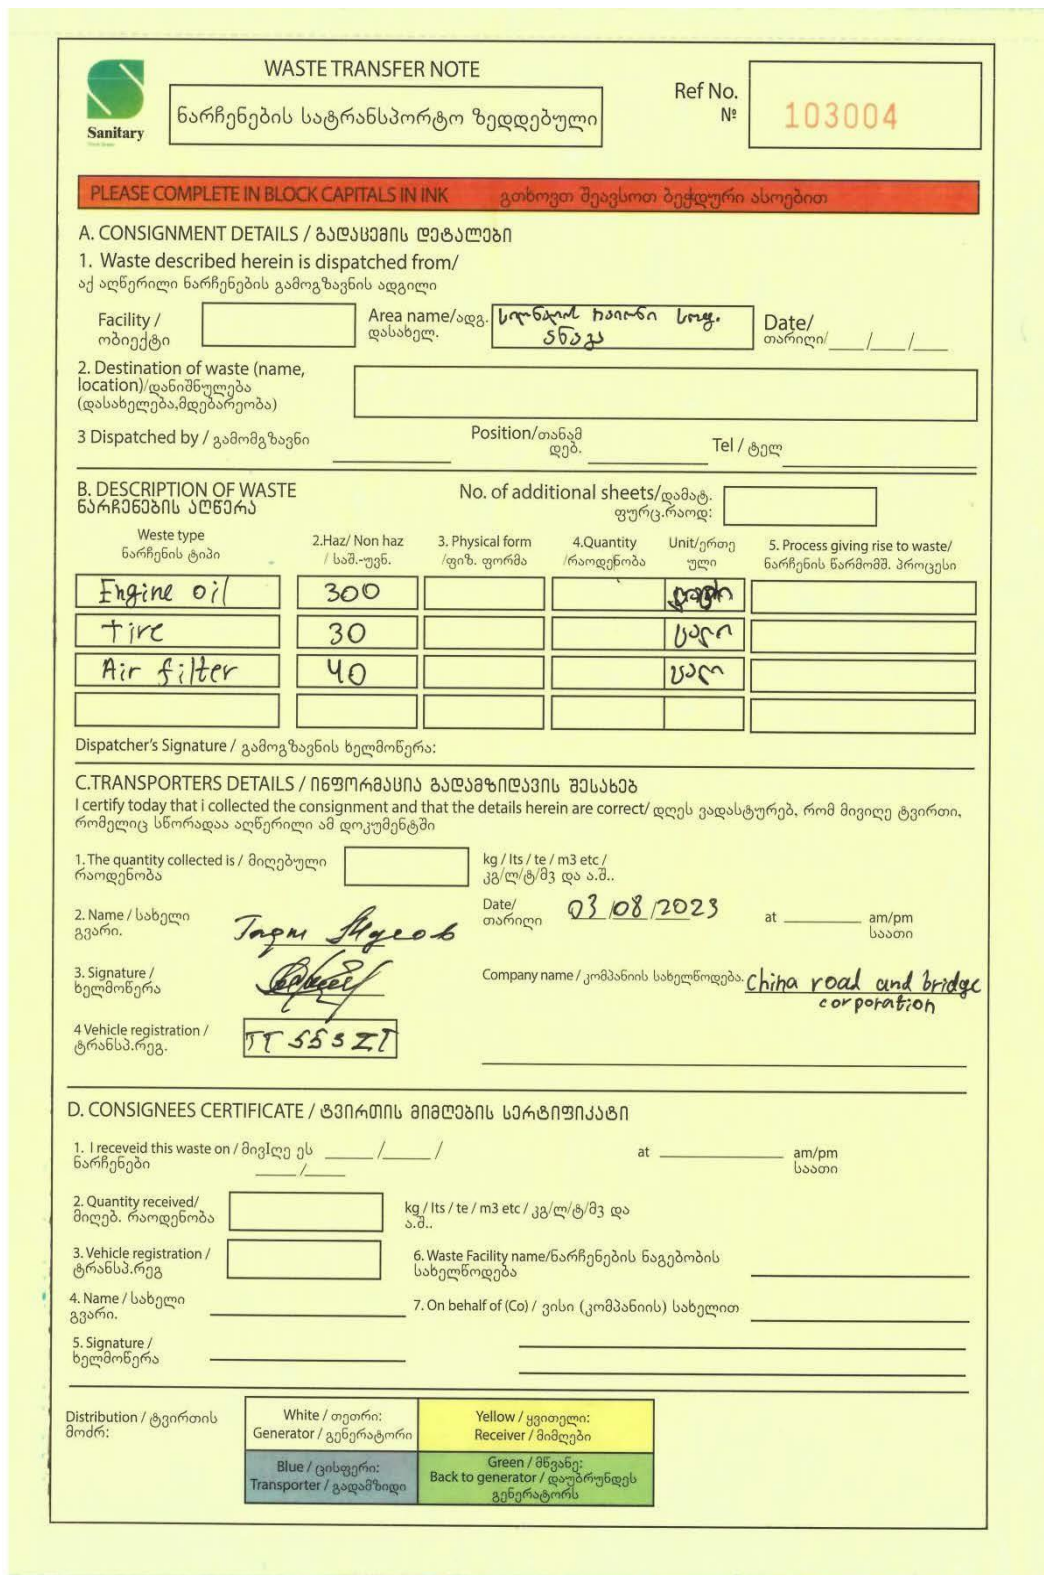 WASTE TRANSFER NOTE
ნარჩენების სატრანსპორტო ზედდებული
Ref No.
№
103004
Sanitary
PLEASE COMPLETE IN BLOCK CAPITALS IN INK გთხოვთ შეავსოთ ბეჭდური ასოებით
A. CONSIGNMENT DETAILS / გადაცემის დეტალები
1. Waste described herein is dispatched from/
აქ აღწერილი ნარჩენების გამოგზავნის ადგილი
Facility /
ობიექტი
Area name/ადგ.
დასახელ.
რაიონი სოფ.
ანაგა
Date/
თარიღი/ ___/___/___
2. Destination of waste (name,
location)/დანიშნულება
(დასახელება,მდებარეობა)
3 Dispatched by / გამომგზავნი
Position/თანამ
დებ.
Tel / ტელ
B. DESCRIPTION OF WASTE
ნარჩენების აღწერა
No. of additional sheets/დამატ.
ფურც.რაოდ:
Weste type
ნარჩენის ტიპი
2.Haz/ Non haz
/ საშ.-უვნ.
3. Physical form
/ფიზ. ფორმა
4.Quantity
/რაოდენობა
Unit/ერთე
ული
5. Process giving rise to waste/
ნარჩენის წარმომშ. პროცესი
Engine oil 300
Tire 30 ცალი
Air filter 40 ცალი
Dispatcher's Signature / გამოგზავნის ხელმოწერა:
C.TRANSPORTERS DETAILS / ინფორმაცია გადამზიდავის შესახებ
I certify today that i collected the consignment and that the details herein are correct/ დღეს ვადასტურებ, რომ მივიღე ტვირთი,
რომელიც სწორადაა აღწერილი ამ დოკუმენტში
1. The quantity collected is / მიღებული
რაოდენობა
kg / lts / te / m3 etc /
კგ/ლ/ტ/მ3 და ა.შ..
2. Name / სახელი
გვარი.
Date/
თარიღი
03/08/2023
at ________ am/pm
საათი
3. Signature /
ხელმოწერა
Company name / კომპანიის სახელწოდება. China road and bridge
corporation
4 Vehicle registration /
ტრანსპ.რეგ.
TT 553 ZT
D. CONSIGNEES CERTIFICATE / ტვირთის მიმღების სერტიფიკატი
1. I receveid this waste on / მივIღე ეს ____/____/
ნარჩენები ____/____
at ________ am/pm
საათი
2. Quantity received/
მიღებ. რაოდენობა
kg / lts / te / m3 etc / კგ/ლ/ტ/მ3 და
ა.შ..
3. Vehicle registration /
ტრანსპ.რეგ
6. Waste Facility name/ნარჩენების ნაგებობის
სახელწოდება
4. Name / სახელი
გვარი.
7. On behalf of (Co) / ვისი (კომპანიის) სახელით
5. Signature /
ხელმოწერა
Distribution / ტვირთის
მოძრ:
White / თეთრი:
Generator / გენერატორი
Yellow / ყვითელი:
Receiver / მიმღები
Blue / ცისფერი:
Transporter / გადამზიდი
Green / მწვანე:
Back to generator / დაუბრუნდეს
გენერატორს